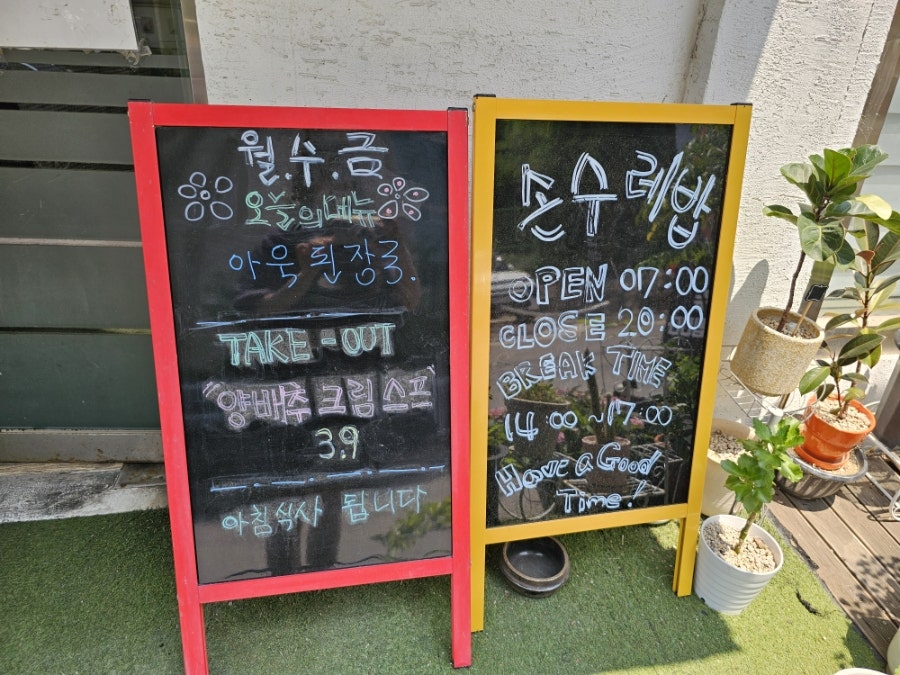 월.수.금
오늘의메뉴
아욱된장국.
TAKE-OUT
"양배추 크림 스프"
3.9
아침식사 됩니다
손수레밥
OPEN 07:00
CLOSE 20:00
BREAK TIME
14:00~17:00
Have a Good
Time!